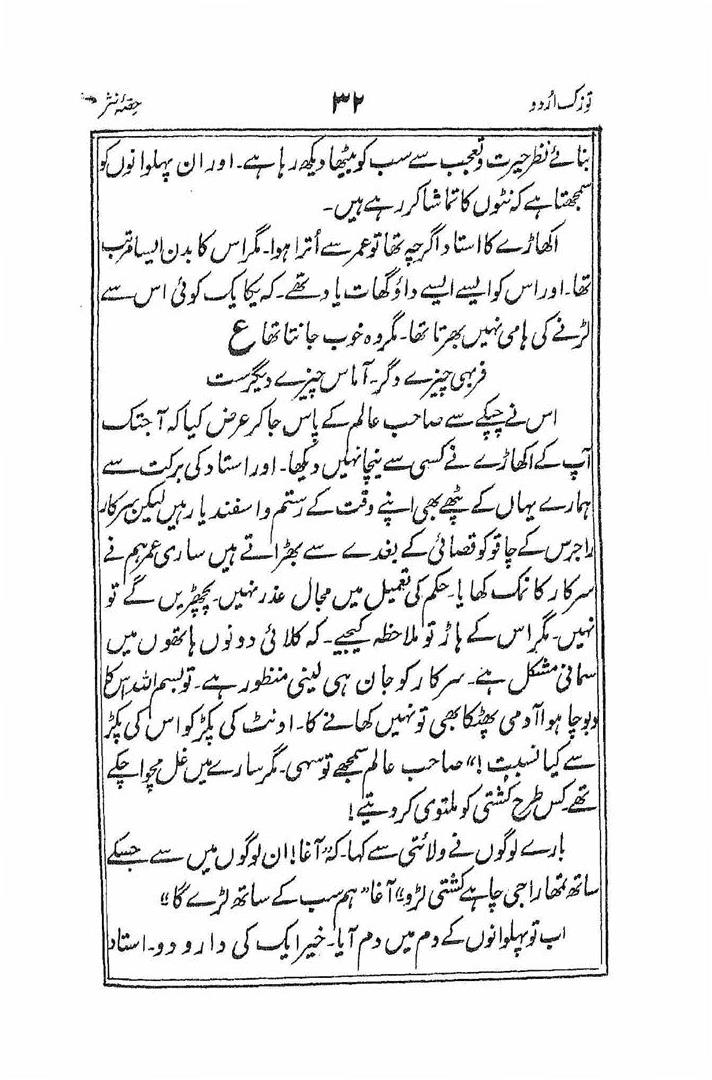 توزک اُردو
۳۲
حصّۂ نثر
بنائے نظرِ حیرت و تعجب سے سب کو بیٹھا دیکھ رہا ہے۔ اور ان پہلوانوں کو
سمجھتا ہے کہ نٹوں کا تماشا کر رہے ہیں۔
اکھاڑے کا استاد اگرچہ تھا تو عمر سے اُترا ہوا۔ مگر اس کا بدن ایسا مرتب
تھا۔ اور اس کو ایسے ایسے داؤ گھات یاد تھے۔ کہ یکایک کوئی اس سے
لڑنے کی ہامی نہیں بھرتا تھا۔ مگر وہ خوب جانتا تھا ع
فربہی چیزے دگر۔ آماس چیزے دیگرست
اس نے چپکے سے صاحب عالم کے پاس جا کر عرض کیا کہ آجتک
آپ کے اکھاڑے نے کسی سے نیچا نہیں دیکھا۔ اور استاد کی برکت سے
ہمارے یہاں کے پٹھے بھی اپنے وقت کے رستم و اسفندیار ہیں لیکن سرکار
راجرس کے چاقو کو قصائی کے بغدے سے بھڑاتے ہیں ساری عمر ہم نے
سرکار کا نمک کھایا۔ حکم کی تعمیل میں مجال عذر نہیں۔ پچھڑیں گے تو
نہیں۔ مگر اس کے ہاڑ تو ملاحظہ کیجیے۔ کہ کلائی دونوں ہاتھوں میں
سمانی مشکل ہے۔ سرکار کو جان ہی لینی منظور ہے۔ تو بسم اللہ اس کا
دبوچا ہوا آدمی پھٹکا بھی تو نہیں کھانے کا۔ اونٹ کی پکڑ کو اس کی پکڑ
سے کیا نسبت!“ صاحب عالم سمجھے تو سہی۔ مگر سارے میں غل مچوا چکے
تھے کس طرح کُشتی کو ملتوی کر دیتے!
بارے لوگوں نے ولائتی سے کہا۔ کہ”آغا! ان لوگوں میں سے جسکے
ساتھ تمھارا جی چاہے کشتی لڑو“ آغا ”ہم سب کے ساتھ لڑے گا“
اب تو پہلوانوں کے دم میں دم آیا۔ خیر ایک کی دارو دو۔ استاد